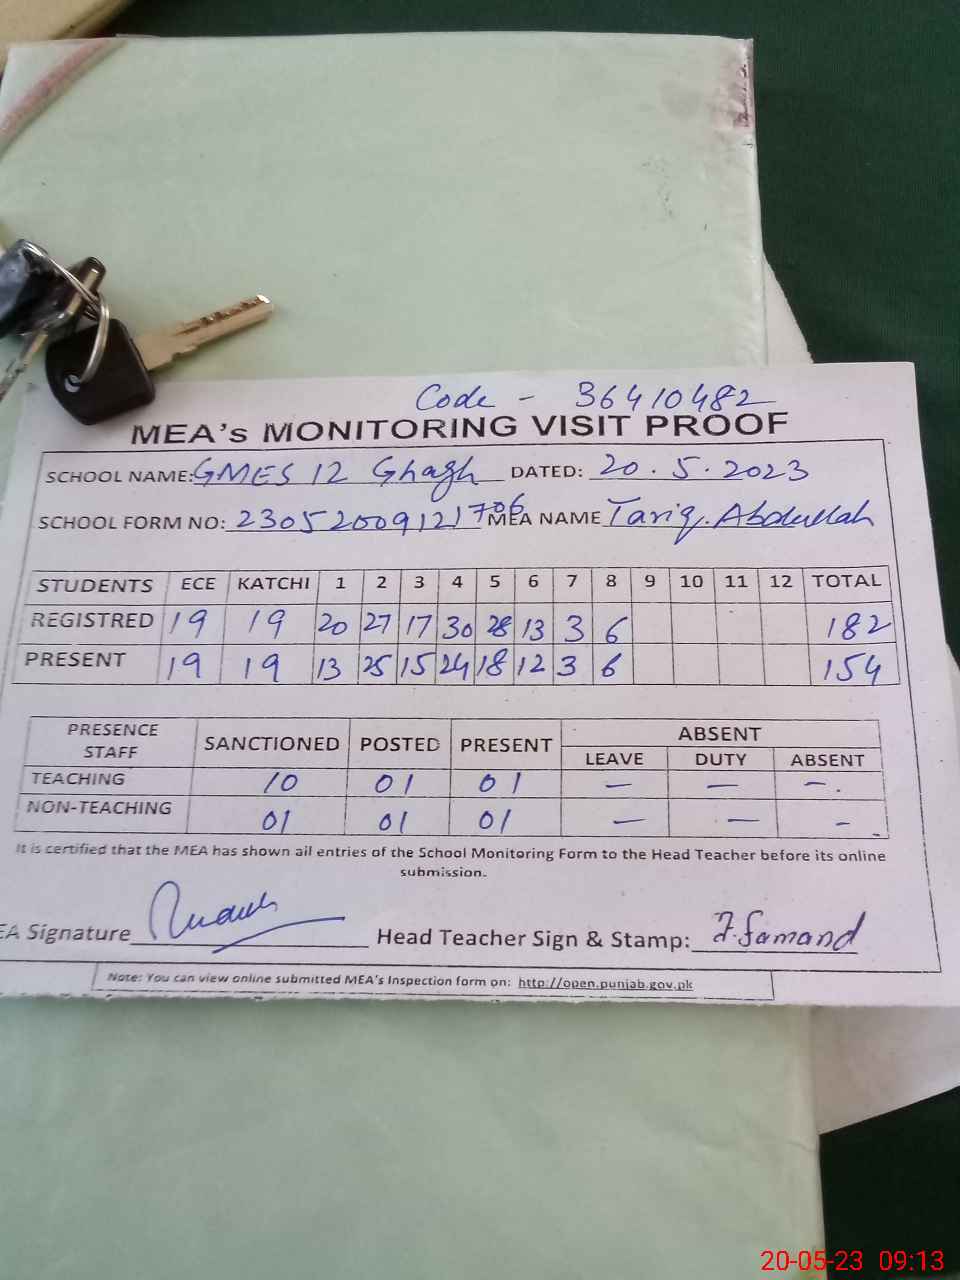 Code - 36410482
MEA's MONITORING VISIT PROOF
SCHOOL NAME: GMES 12 Ghagh DATED: 20.5.2023
SCHOOL FORM NO: 23052009121706 MEA NAME Tariq Abdullah
STUDENTS ECE KATCHI 1 2 3 4 5 6 7 8 9 10 11 12 TOTAL
REGISTRED 19 19 20 27 17 30 28 13 3 6 182
PRESENT 19 19 13 25 15 24 18 12 3 6 154
PRESENCE STAFF SANCTIONED POSTED PRESENT ABSENT
LEAVE DUTY ABSENT
TEACHING 10 01 01 — — —.
NON-TEACHING 01 01 01 — — -
It is certified that the MEA has shown all entries of the School Monitoring Form to the Head Teacher before its online
submission.
EA Signature Head Teacher Sign & Stamp: Z.Samand
Note: You can view online submitted MEA's Inspection form on: http://open.punjab.gov.pk
20-05-23 09:13